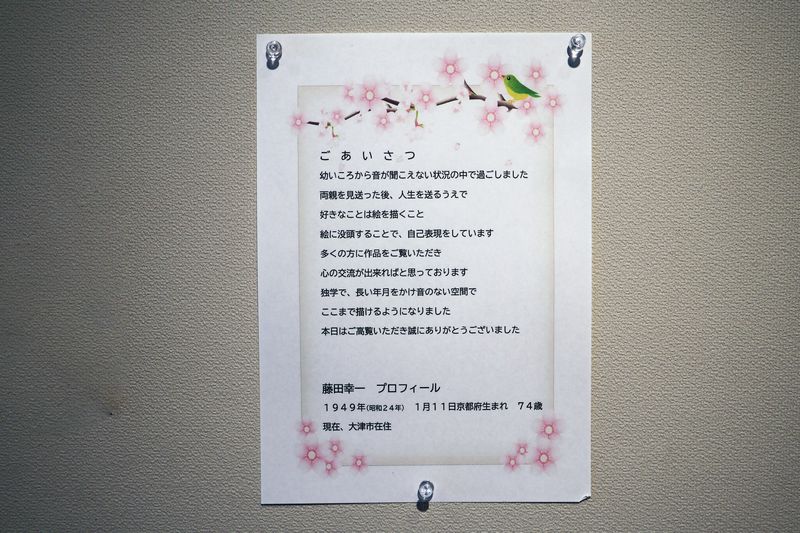 ごあいさつ
幼いころから音が聞こえない状況の中で過ごしました
両親を見送った後、人生を送るうえで
好きなことは絵を描くこと
絵に没頭することで、自己表現をしています
多くの方に作品をご覧いただき
心の交流が出来ればと思っております
独学で、長い年月をかけ音のない空間で
ここまで描けるようになりました
本日はご高覧いただき誠にありがとうございました
藤田幸一　プロフィール
１９４９年(昭和２４年)　１月１１日京都府生まれ　７４歳
現在、大津市在住